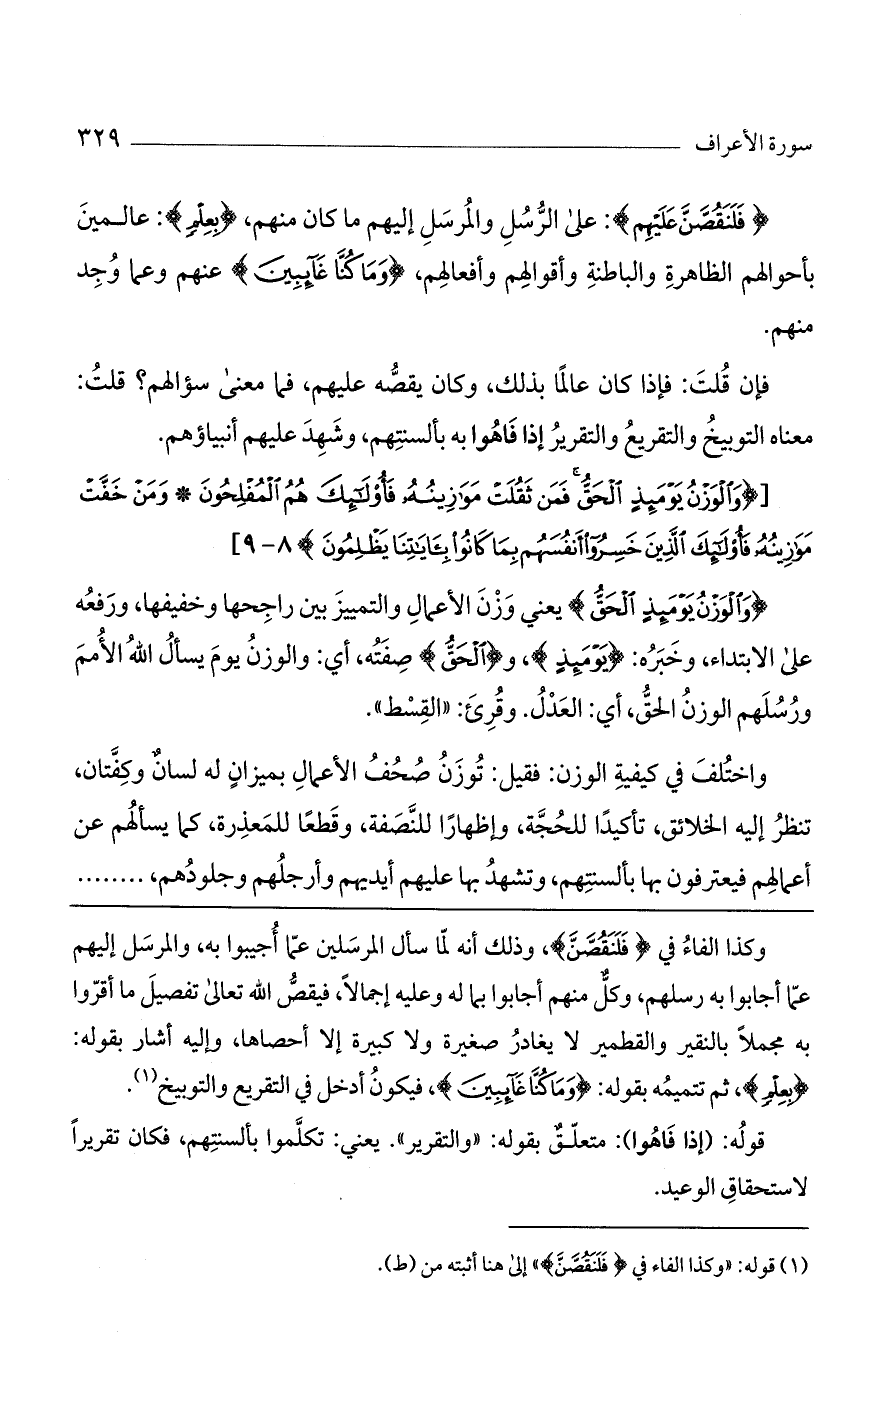 سورة الأعراف ٣٢٩
﴿ فَلَنَقُصَّنَّ عَلَيْهِم ﴾: علىٰ الرُّسُلِ والمُرسَلِ إليهم ما كان منهم، ﴿بِعِلْمٍ﴾: عالـمينَ
بأحوالهم الظاهرةِ والباطنةِ وأقوالِهم وأفعالِهم، ﴿وَمَا كُنَّا غَآئِبِينَ ﴾ عنهم وعما وُجِد
منهم.
فإن قُلتَ: فإذا كان عالمًا بذلك، وكان يقصُّه عليهم، فما معنىٰ سؤالهم؟ قلتُ:
معناه التوبيخُ والتقريعُ والتقريرُ إذا فَاهُوا به بألسنتِهم، وشَهِدَ عليهم أنبياؤهم.
[﴿وَٱلْوَزْنُ يَوْمَئِذٍ ٱلْحَقُّ ۚ فَمَن ثَقُلَتْ مَوَٰزِينُهُۥ فَأُو۟لَٰٓئِكَ هُمُ ٱلْمُفْلِحُونَ * وَمَنْ خَفَّتْ
مَوَٰزِينُهُۥ فَأُو۟لَٰٓئِكَ ٱلَّذِينَ خَسِرُوٓا۟ أَنفُسَهُم بِمَا كَانُوا۟ بِـَٔايَٰتِنَا يَظْلِمُونَ ﴾ ٨-٩]
﴿وَٱلْوَزْنُ يَوْمَئِذٍ ٱلْحَقُّ ﴾ يعني وَزْنَ الأعمالِ والتمييزَ بين راجِحها وخفيفِها، ورَفعُه
علىٰ الابتداء، وخَبَرُه: ﴿يَوْمَئِذٍ ﴾، و﴿ٱلْحَقُّ ﴾ صِفَتُه، أي: والوزنُ يومَ يسألُ اللهُ الأُممَ
ورُسُلَهم الوزنُ الحقُّ، أي: العَدْلُ. وقُرِئَ: «القِسْط».
واختُلفَ في كيفيةِ الوزن: فقيل: تُوزَنُ صُحُفُ الأعمالِ بميزانٍ له لسانٌ وكِفَّتان،
تنظرُ إليه الخلائق، تأكيدًا للحُجَّة، وإظهارًا للنَّصَفة، وقَطعًا للمَعذِرة، كما يسألُهم عن
أعمالِهم فيعترفون بها بألسنتِهم، وتشهدُ بها عليهم أيديهم وأرجلُهم وجلودُهم، ........
وكذا الفاءُ في ﴿ فَلَنَقُصَّنَّ﴾، وذلك أنه لمّا سأل المرسَلين عمّا أُجيبوا به، والمرسَل إليهم
عمّا أجابوا به رسلهم، وكلٌّ منهم أجابوا بما له وعليه إجمالاً، فيقصُّ الله تعالىٰ تفصيلَ ما أقرّوا
به مجملاً بالنقير والقطمير لا يغادرُ صغيرة ولا كبيرة إلا أحصاها، وإليه أشار بقوله:
﴿بِعِلْمٍ ﴾، ثم تتميمُه بقوله: ﴿وَمَا كُنَّا غَآئِبِينَ ﴾، فيكونُ أدخل في التقريع والتوبيخ(١).
قولُه: (إذا فَاهُوا): متعلّقٌ بقوله: «والتقرير». يعني: تكلَّموا بألسنتِهم، فكان تقريراً
لاستحقاقِ الوعيد.
(١) قوله: «وكذا الفاء في ﴿ فَلَنَقُصَّنَّ﴾» إلىٰ هنا أثبته من (ط).